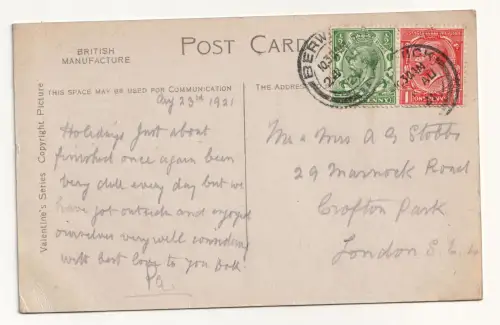 BRITISH
MANUFACTURE
POST CARD
THIS SPACE MAY BE USED FOR COMMUNICATION
THE ADDRESS
Valentine's Series Copyright Picture
Aug 23rd 1921
Holidays just about
finished once again been
very dull every day but we
have got outside and enjoyed
ourselves very well considering
with best love to you both
Mr & Mrs A G Stobbs
29 Marnock Road
Crofton Park
London S.E. 4
BERW